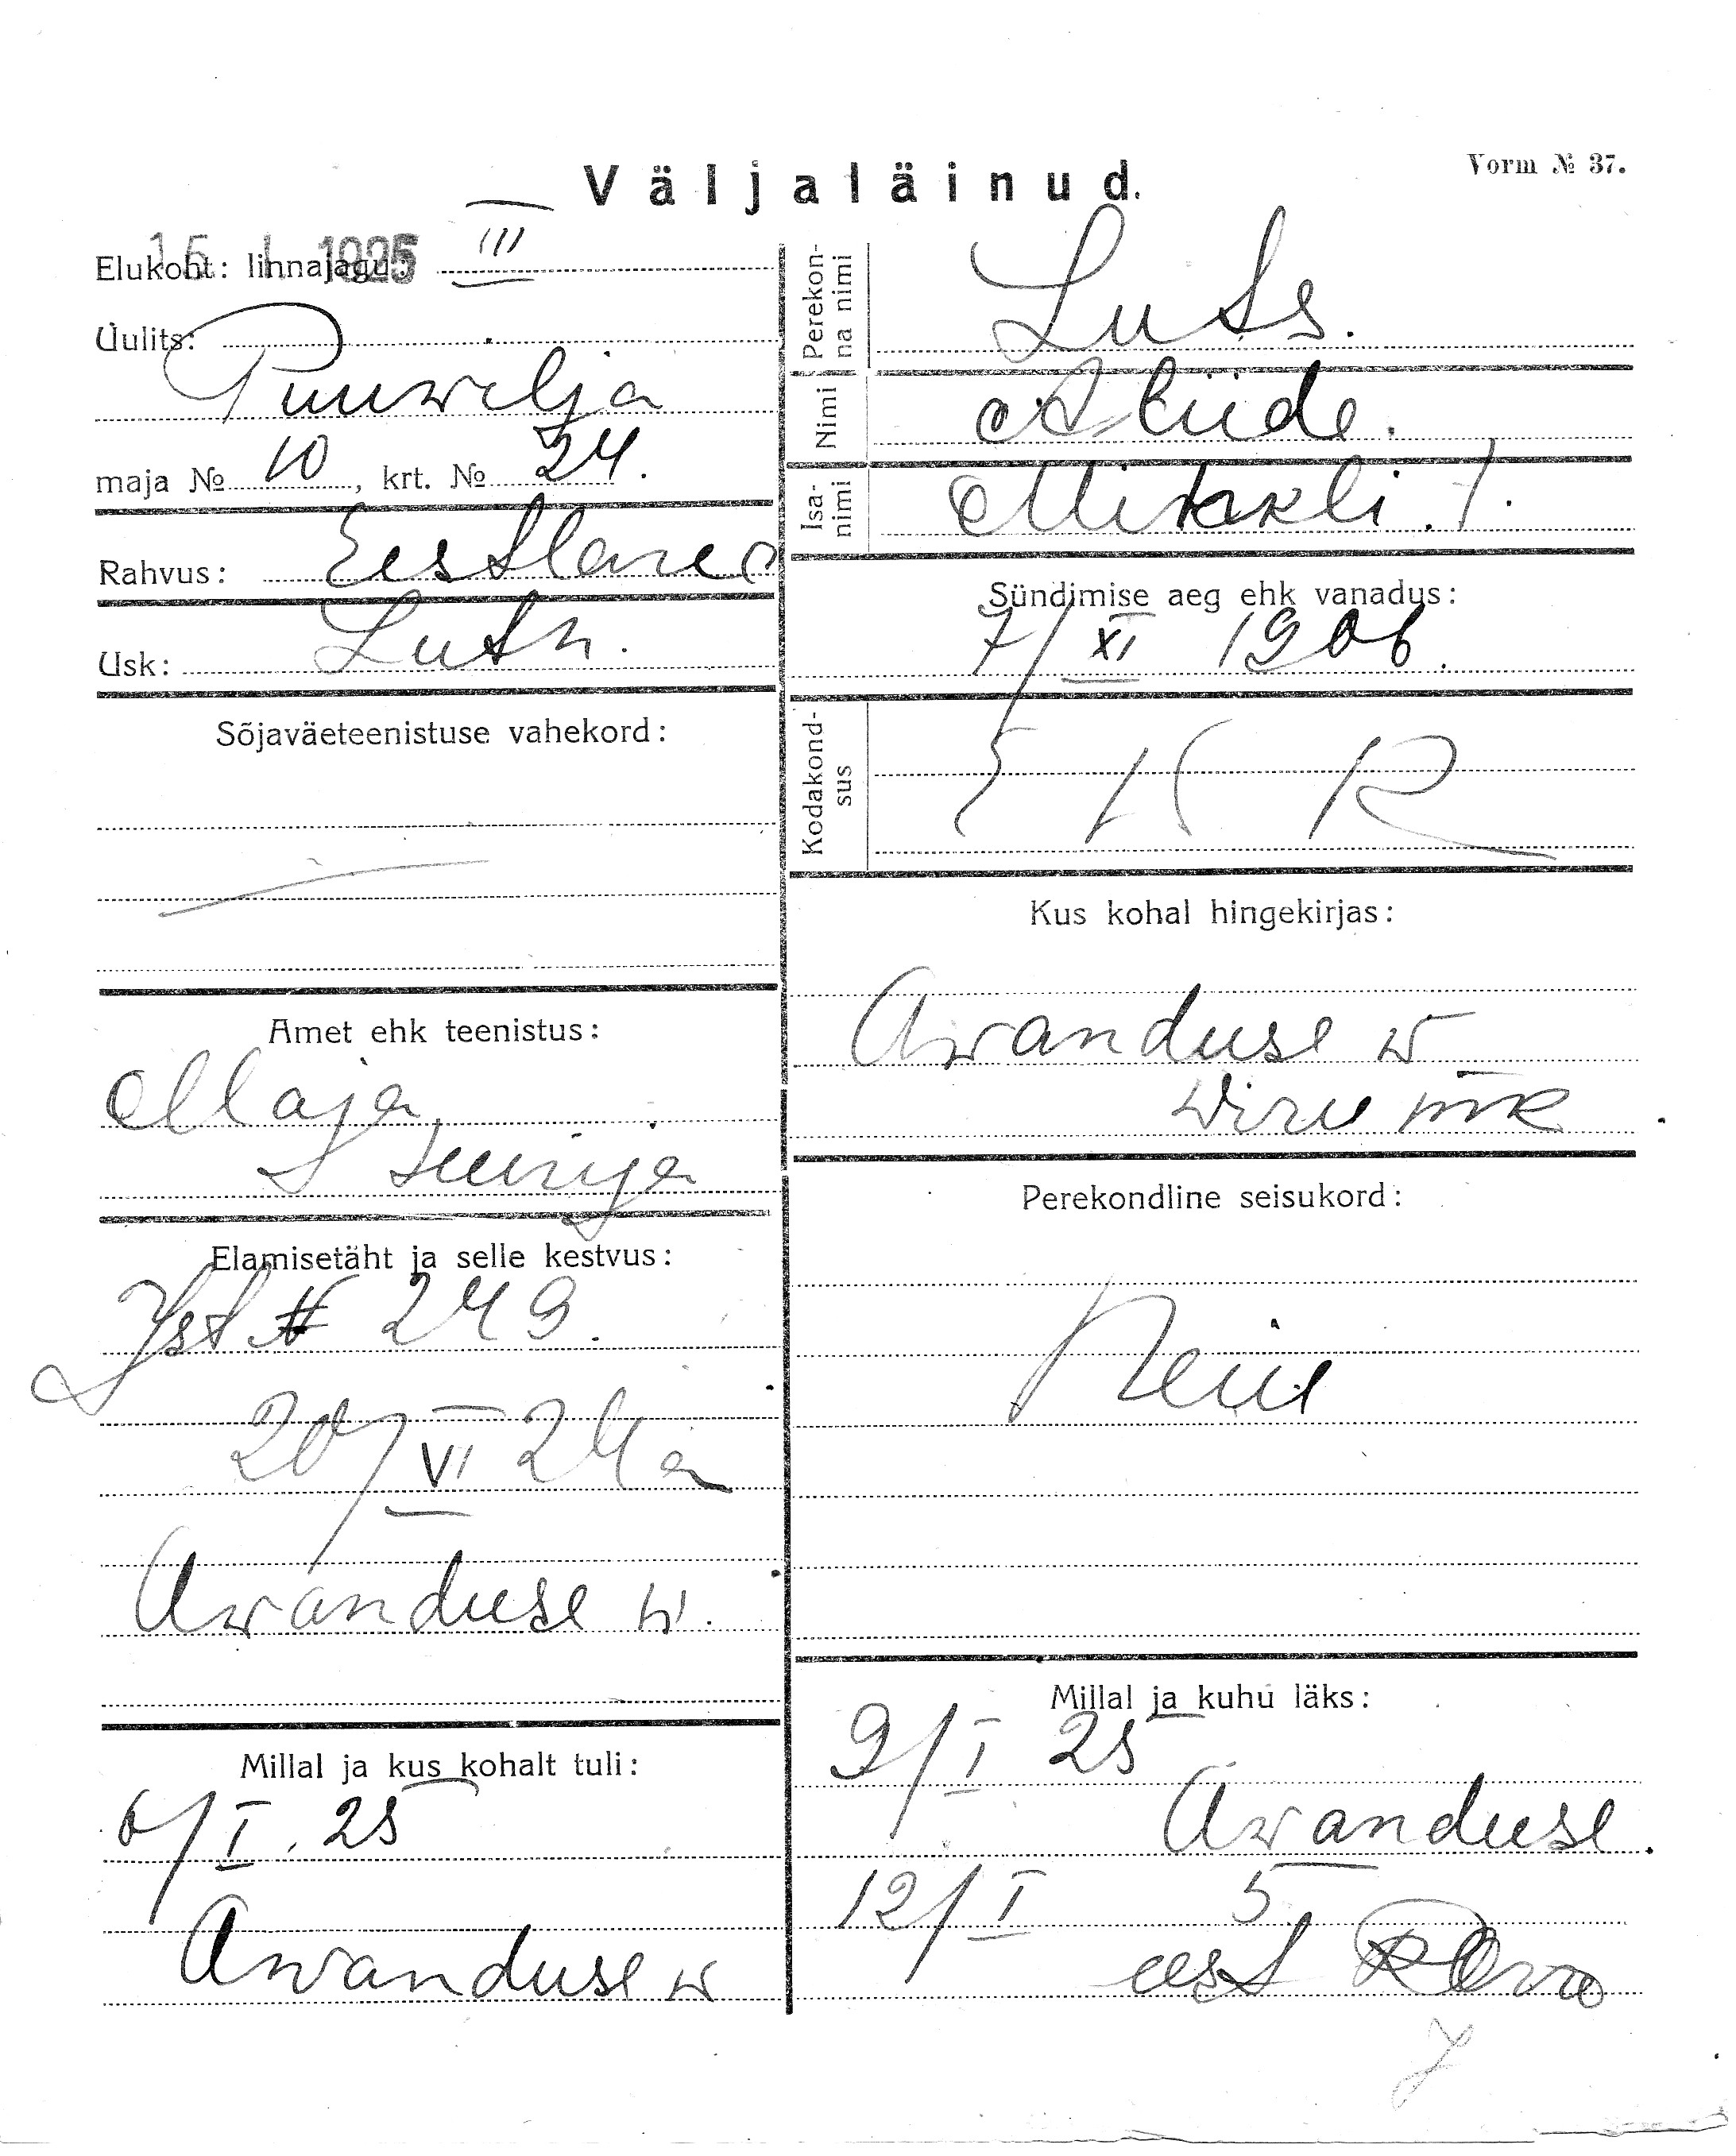 Väljaläinud.
Vorm № 37.
15 I 1925
Elukoht: linnajagu: III
Üulits:
Puuwilja
maja № 10, krt. № 24.
Rahvus: Eestlane
Usk: Luth.
Sõjaväeteenistuse vahekord:
Amet ehk teenistus:
Maja
teenija
Elamisetäht ja selle kestvus:
№ 249.
20/VI 24 a
Awanduse w.
Millal ja kus kohalt tuli:
6/I. 25
Awanduse w
Perekon-
na nimi
Luts.
Nimi
Alide.
Isa-
nimi
Mihkli t.
Sündimise aeg ehk vanadus:
7/XI 1906.
Kodakond-
sus
E W R
Kus kohal hingekirjas:
Awanduse w
Wiru mk
Perekondline seisukord:
Neiu
Millal ja kuhu läks:
9/I 25
Awanduse.
12/I 5